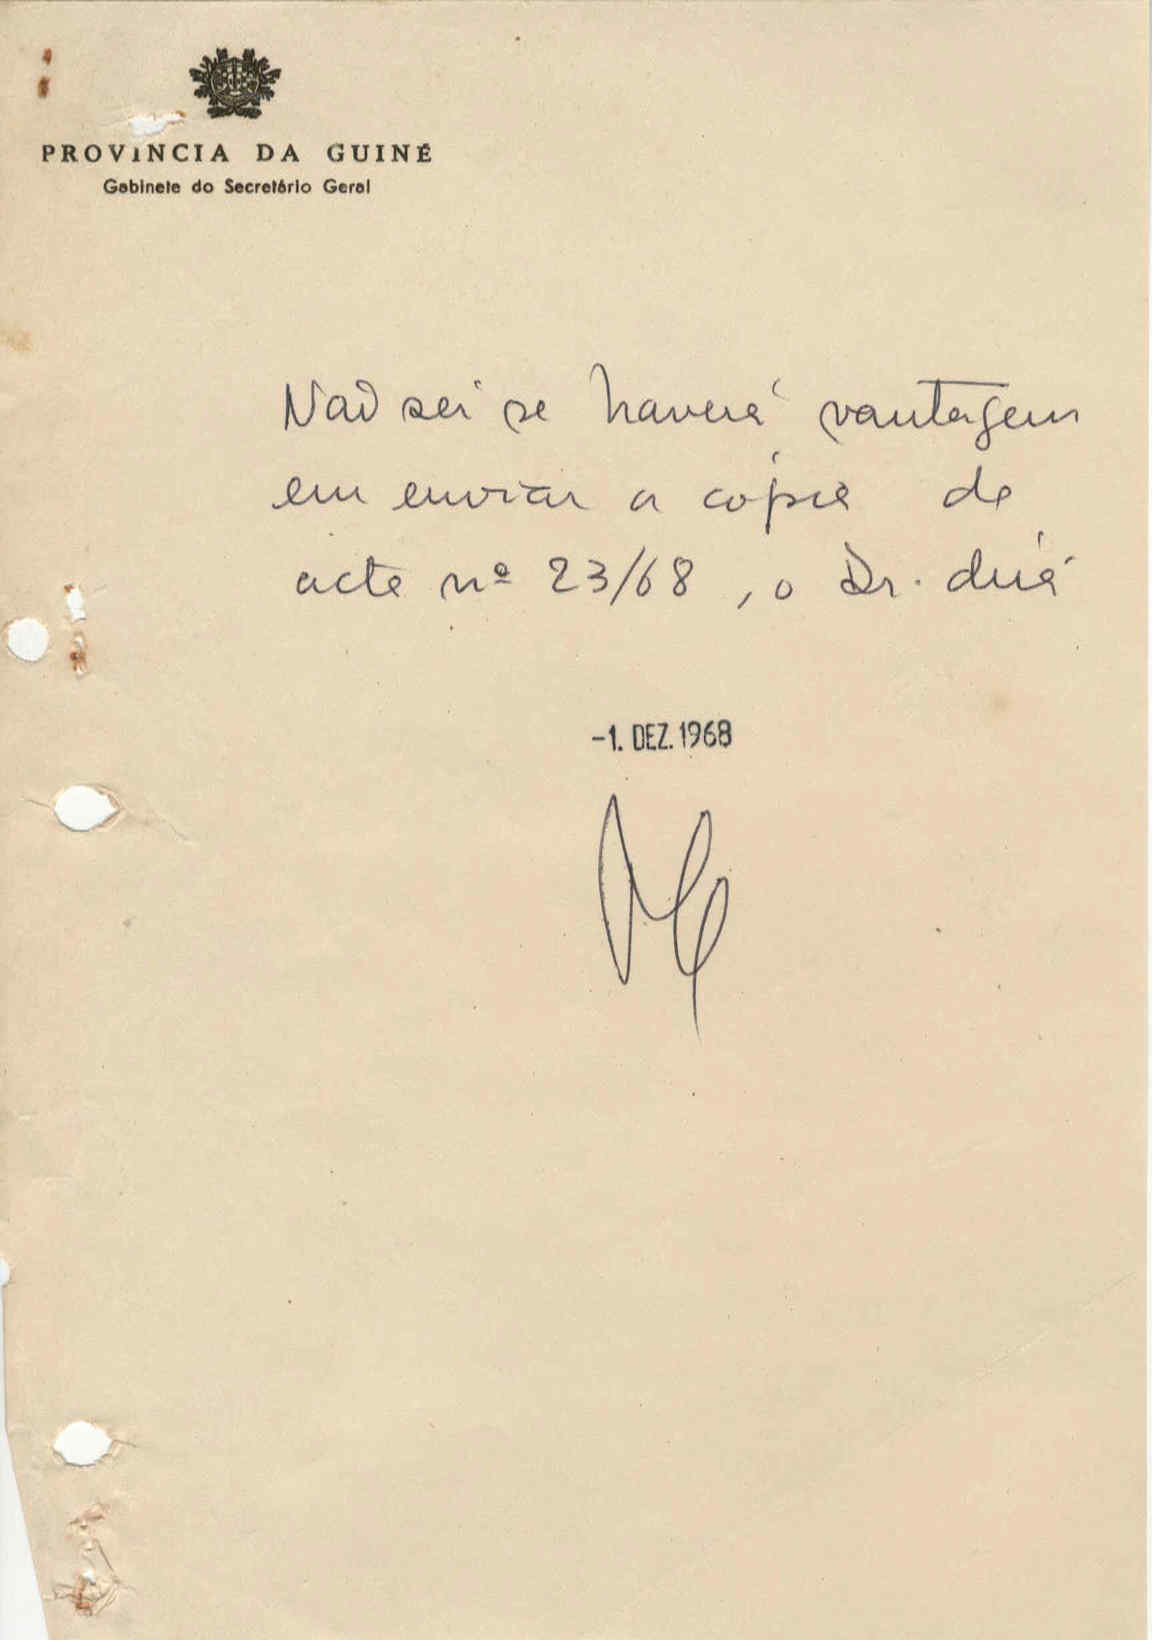 PROVÍNCIA DA GUINÉ
Gabinete do Secretário Geral
Não sei se haverá vantagem
em enviar a cópia da
acta nº 23/68, o Dr. dirá
-1. DEZ. 1968